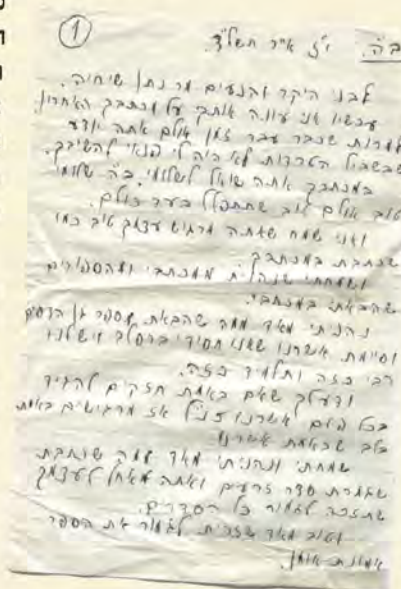 1
ב"ה. י"ז אייר תשל"ד.
לבני היקר והנעים מר נתן שיחיה.
עכשיו אני עונה אותך על מכתבך האחרון
למרות שכבר עבר זמן אולם אתה יודע
שבשביל הטרדות לא היה לי פנאי להשיבך.
במכתבך אתה שואל לשלומי, ב"ה שלומי
טוב אולם טוב שתתפלל בעד כולם.
ואני שמח שאתה מרגיש עצמך טוב כמו
שכתבת במכתבך.
ושמחתי שנהנית ממכתבי ומהספורים
שהבאתי במכתבי.
נהניתי מאד ממה שהבאת מספר גן הדסים
וסיימת אשרנו שאנו חסידי ברסלב ויש לנו
רבי כזה ותלמיד כזה.
ודע לך שאם באמת חזקים להגיד
בכל יום אשרנו אז מרגישים באמת
בלב שבאמת אשרנו.
שמחתי ונהניתי מאד ממה שכתבת
שגמרת סדר זרעים ואתה מאחל לעצמך
שתזכה לגמור כל הסדרים.
וטוב מאד שזכית לגמור את הספר
אמונת אומן.